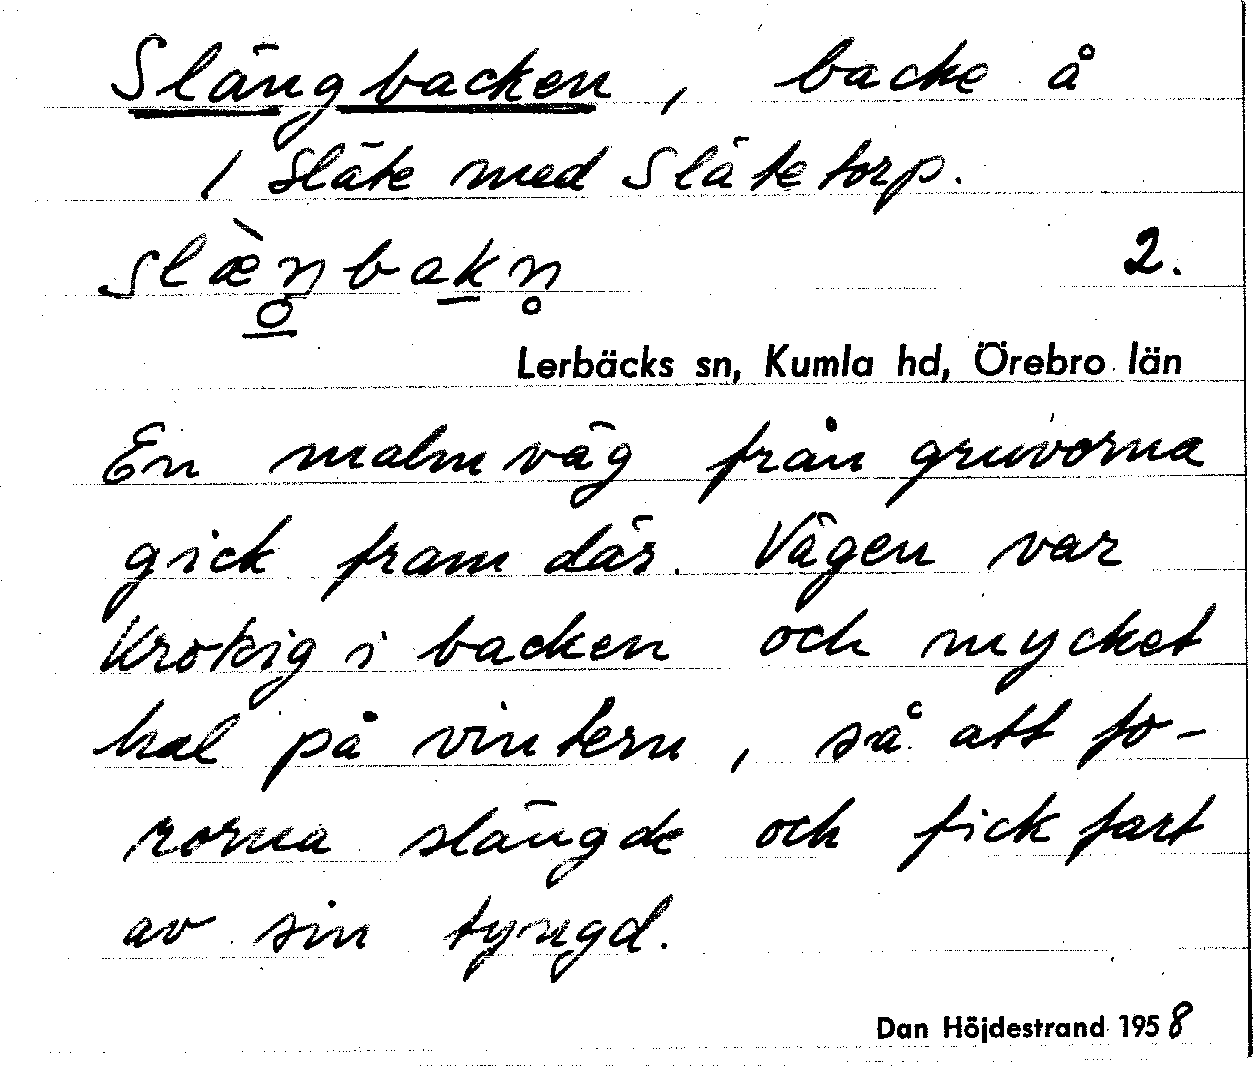 Slängbacken, backe å
1 Släte med Slätetorp.
slæ̀nbakn̥
2.
Lerbäcks sn, Kumla hd, Örebro län
En malmväg från gruvorna
gick fram där. Vägen var
krokig i backen och mycket
hal på vintern, så att fo-
rorna slängde och fick fart
av sin tyngd.
Dan Höjdestrand 1958